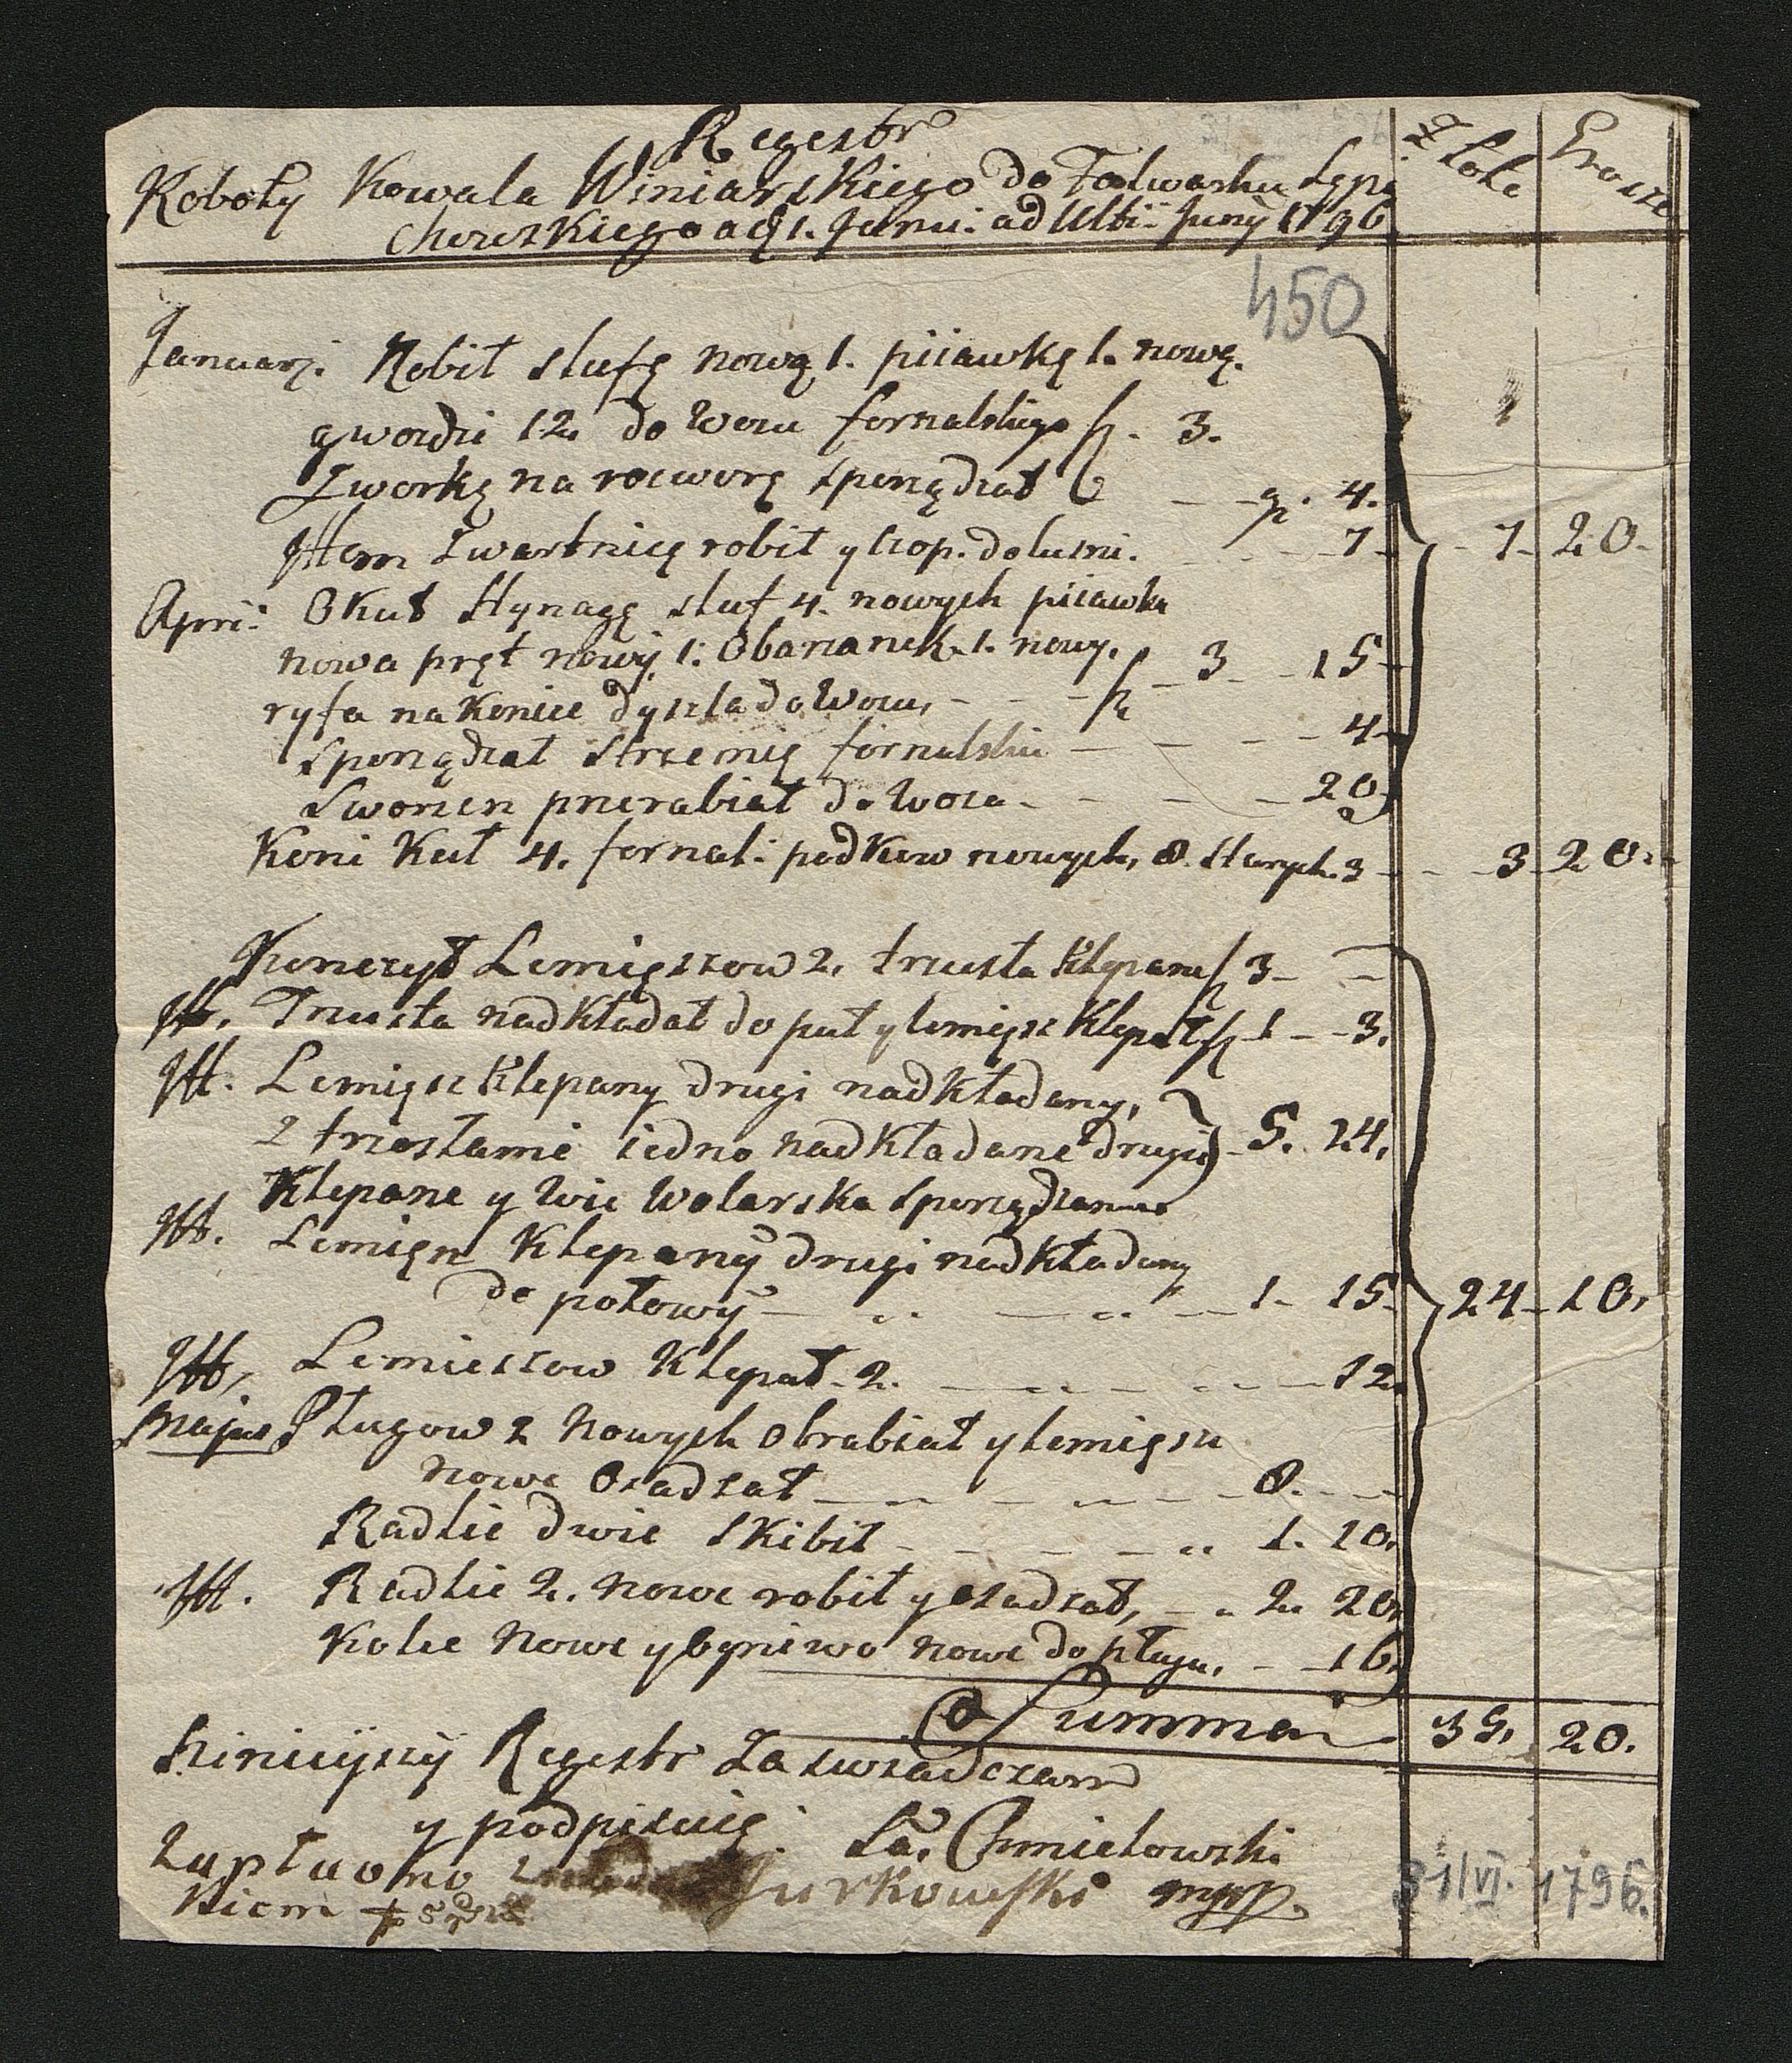 Regestr
Roboty Kowala Winiarskiego do Folwarku Lępi
chowskiego a d 1. Janu: ad Ulti: Juny 1796
Złote Grosze
450
Januarj. Robił slufę nową 1. piiawkę 1. nową.
gwozdzi 12. do Wozu fornalskiego fl. 3.
Zworkę na rozworę sporządzał gr. 4.
Item zwartnicę robił y czop. do luśni. 7 - 7 - 20.
Apri: Okuł Hynagę sluf 4. nowych piiawka
nowa pręt nowy 1: Obarzanek 1. nowy. 3 15
ryfa na koniec dyszla do Wozu, fl
Sporządzał Strzemię fornalskie 4
Sworzen przerabiał do Woza 20
Koni Kuł 4. fornal: podków nowych, 8. Starych. 3 - 3 20.
Kończył Lemięszow 2. trzusła Klepane fl 3
It. Trzusła nadkładał do puł y lemięsz Klepał fl 1 3.
Itt. Lemięsz Klepany drugi nadkładany,
2 trzosłami iedno nadkładane drugie 5. 24.
Klepane y Wić Wolarska Sporządzana
Itt. Lemięsz Klepany drugi nadkładany
do połowy 1 15. 24 10.
Itt. Lemieszow Klepał 2. 12.
Majus Pługow 2 Nowych obrabiał y lemięsze
nowe Osadzał 8.
Radlic dwie Skibił 1. 10.
Itt. Radlic 2. nowe robił y osadzał, 2 20.
Kolce Nowe y ogniwo nowe do pługu, 16.
Summa 35. 20.
Ninieyszy Regestr Zaswiadczam
y podpisuię. Chmielowski
Zapłacono
Jurkowski mpp.
31/VI. 1796.